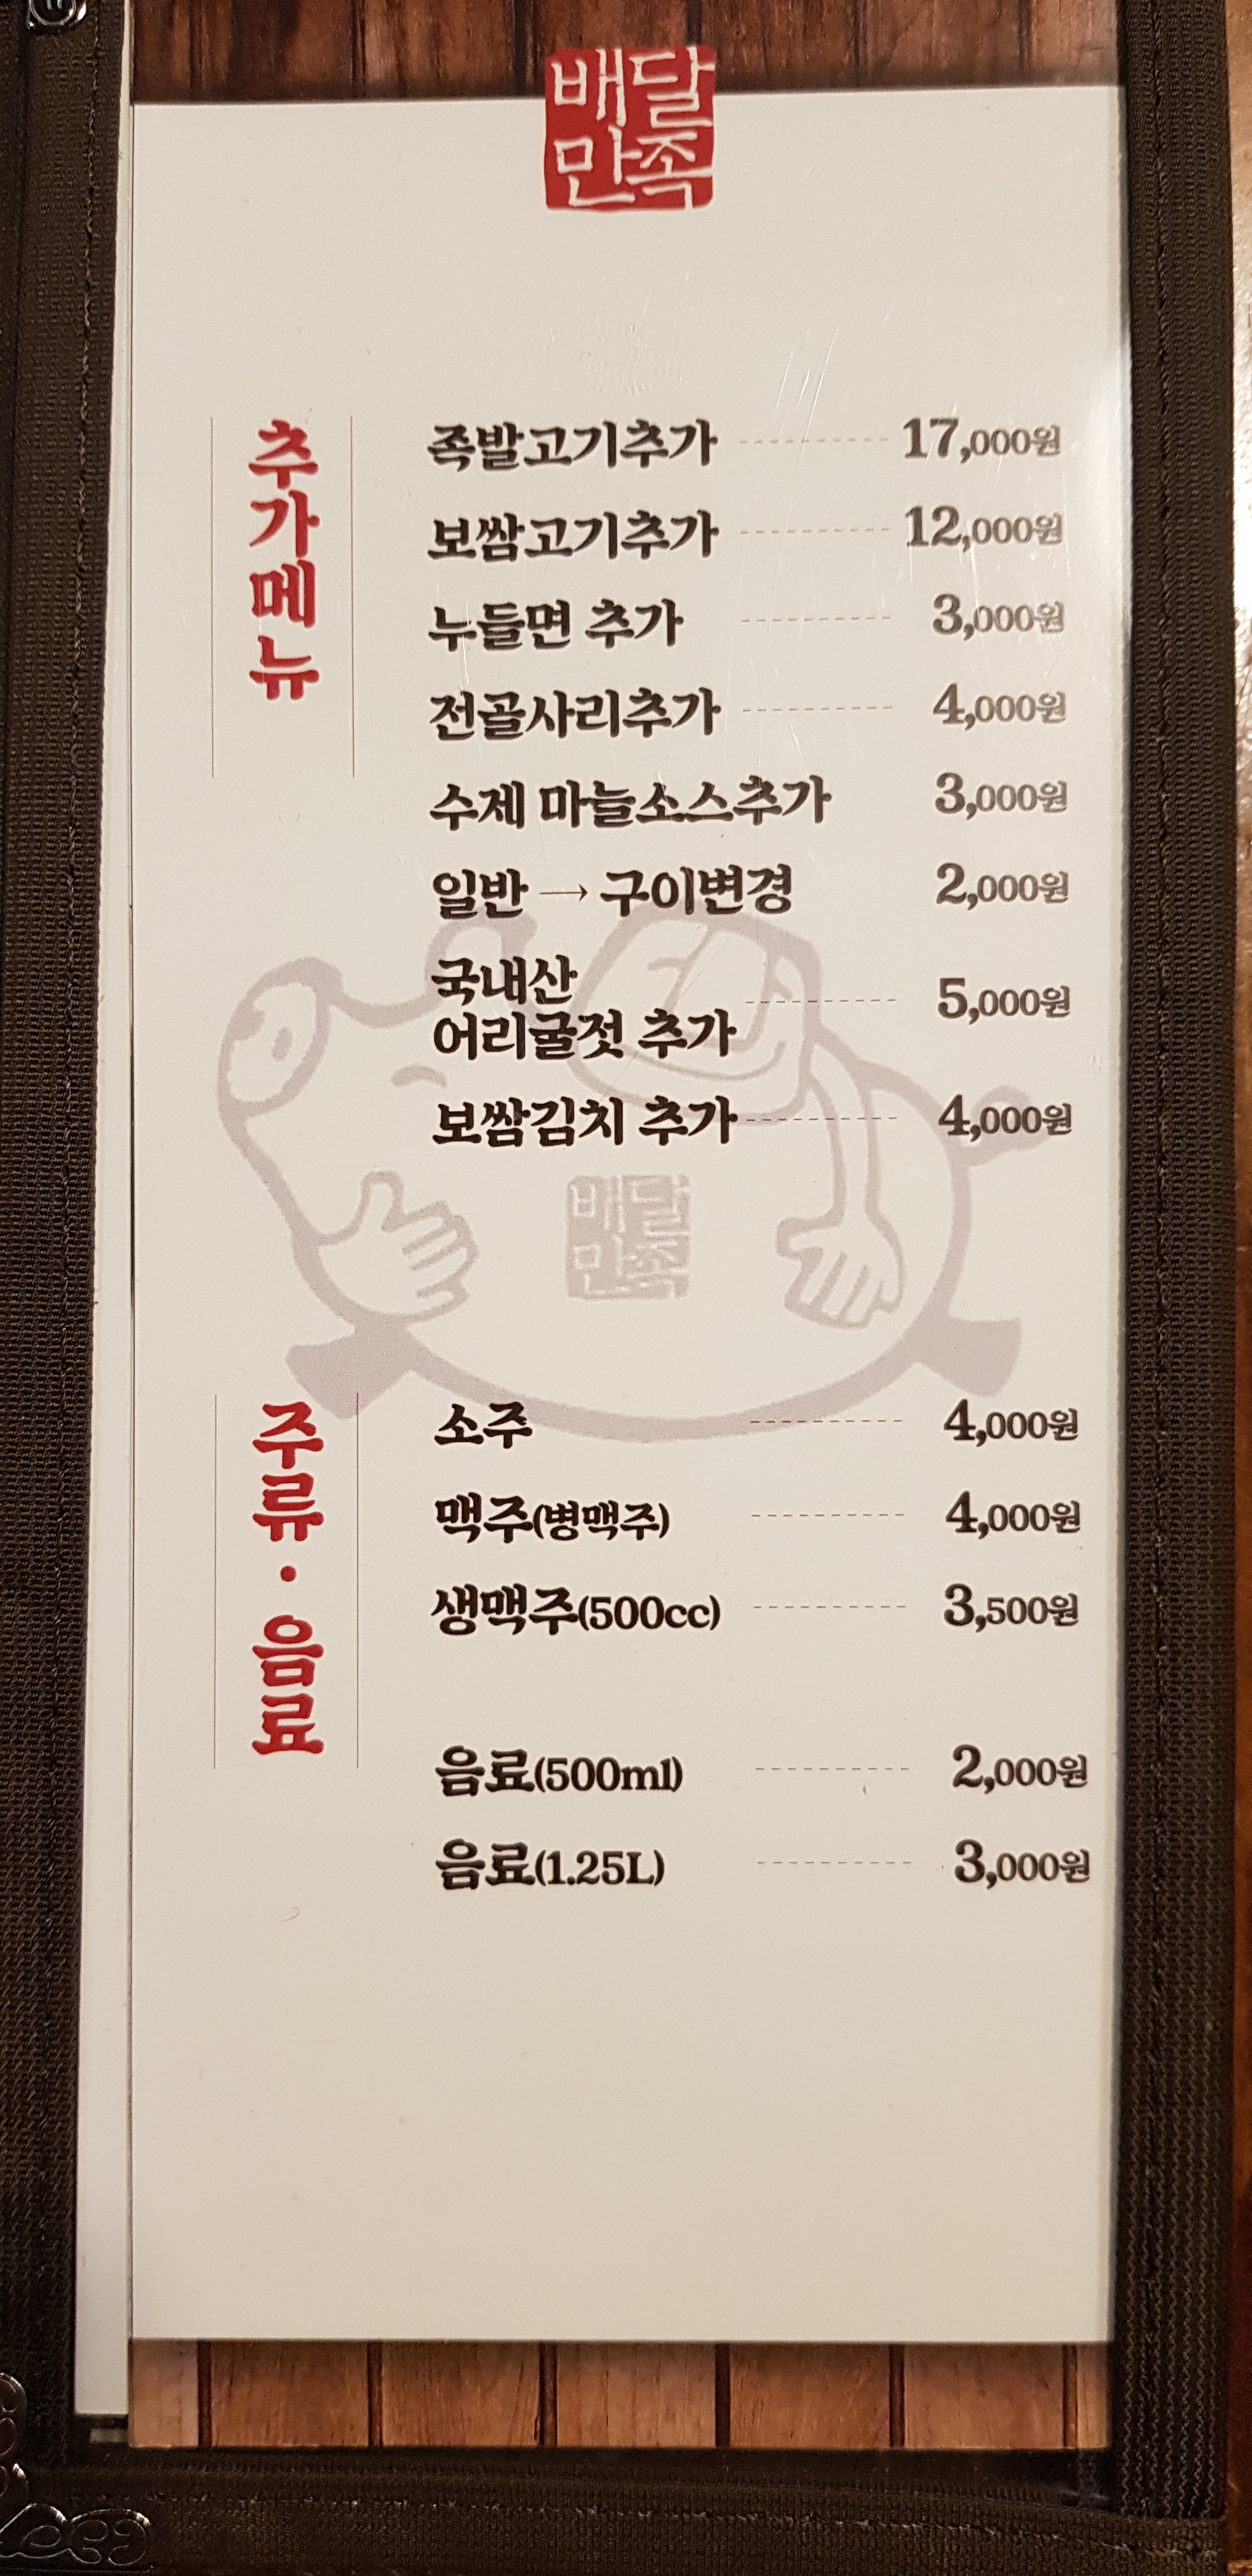 배달
만족
추가메뉴
족발고기추가 17,000원
보쌈고기추가 12,000원
누들면 추가 3,000원
전골사리추가 4,000원
수제 마늘소스추가 3,000원
일반 → 구이변경 2,000원
국내산
어리굴젓 추가 5,000원
보쌈김치 추가 4,000원
배달
만족
주류 · 음료
소주 4,000원
맥주(병맥주) 4,000원
생맥주(500cc) 3,500원
음료(500ml) 2,000원
음료(1.25L) 3,000원